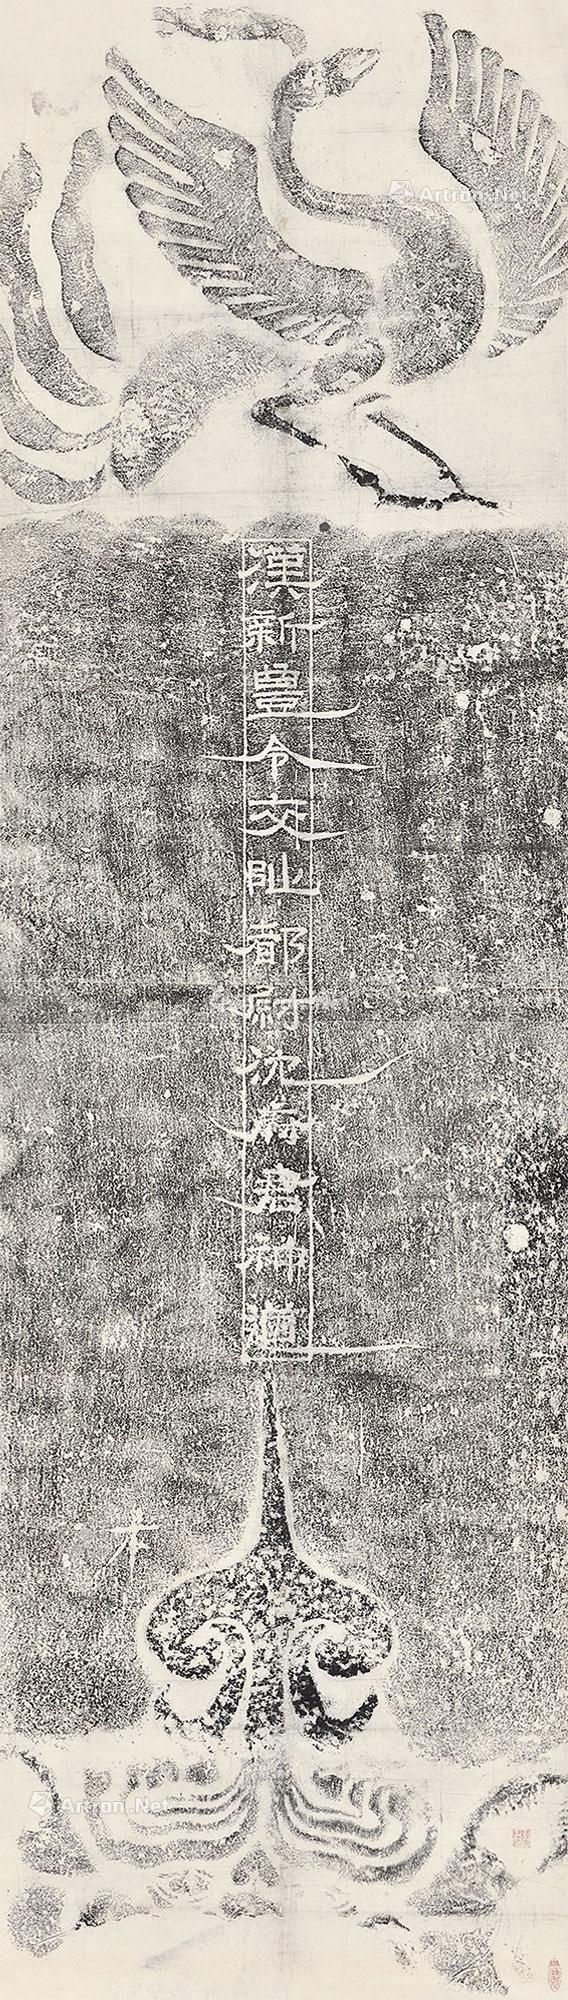 漢新豐令交阯都尉沈府君神道
木
Artron.Net
Artron.Net